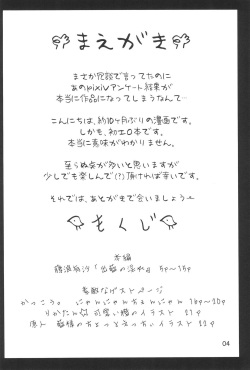 まえがき
まさか冗談で言ってたのに
あのpixivアンケート結果が
本当に作品になってしまうなんて…
こんにちは、約10ヶ月ぶりの漫画です。
しかも、初エロ本です。
本当に意味がわかりません。
至らぬ点が多いと思いますが
少しでも楽しんで(?)頂ければ幸いです。
それでは、あとがきで会いましょうー
もくじ
本編
5p〜15p
素敵なゲストページ
かっこう。 にゃんにゃんちぇんにゃん 18p〜20p
りかたん 可愛い橙のイラスト 21p
のちょっとえっちいイラスト 22p
04